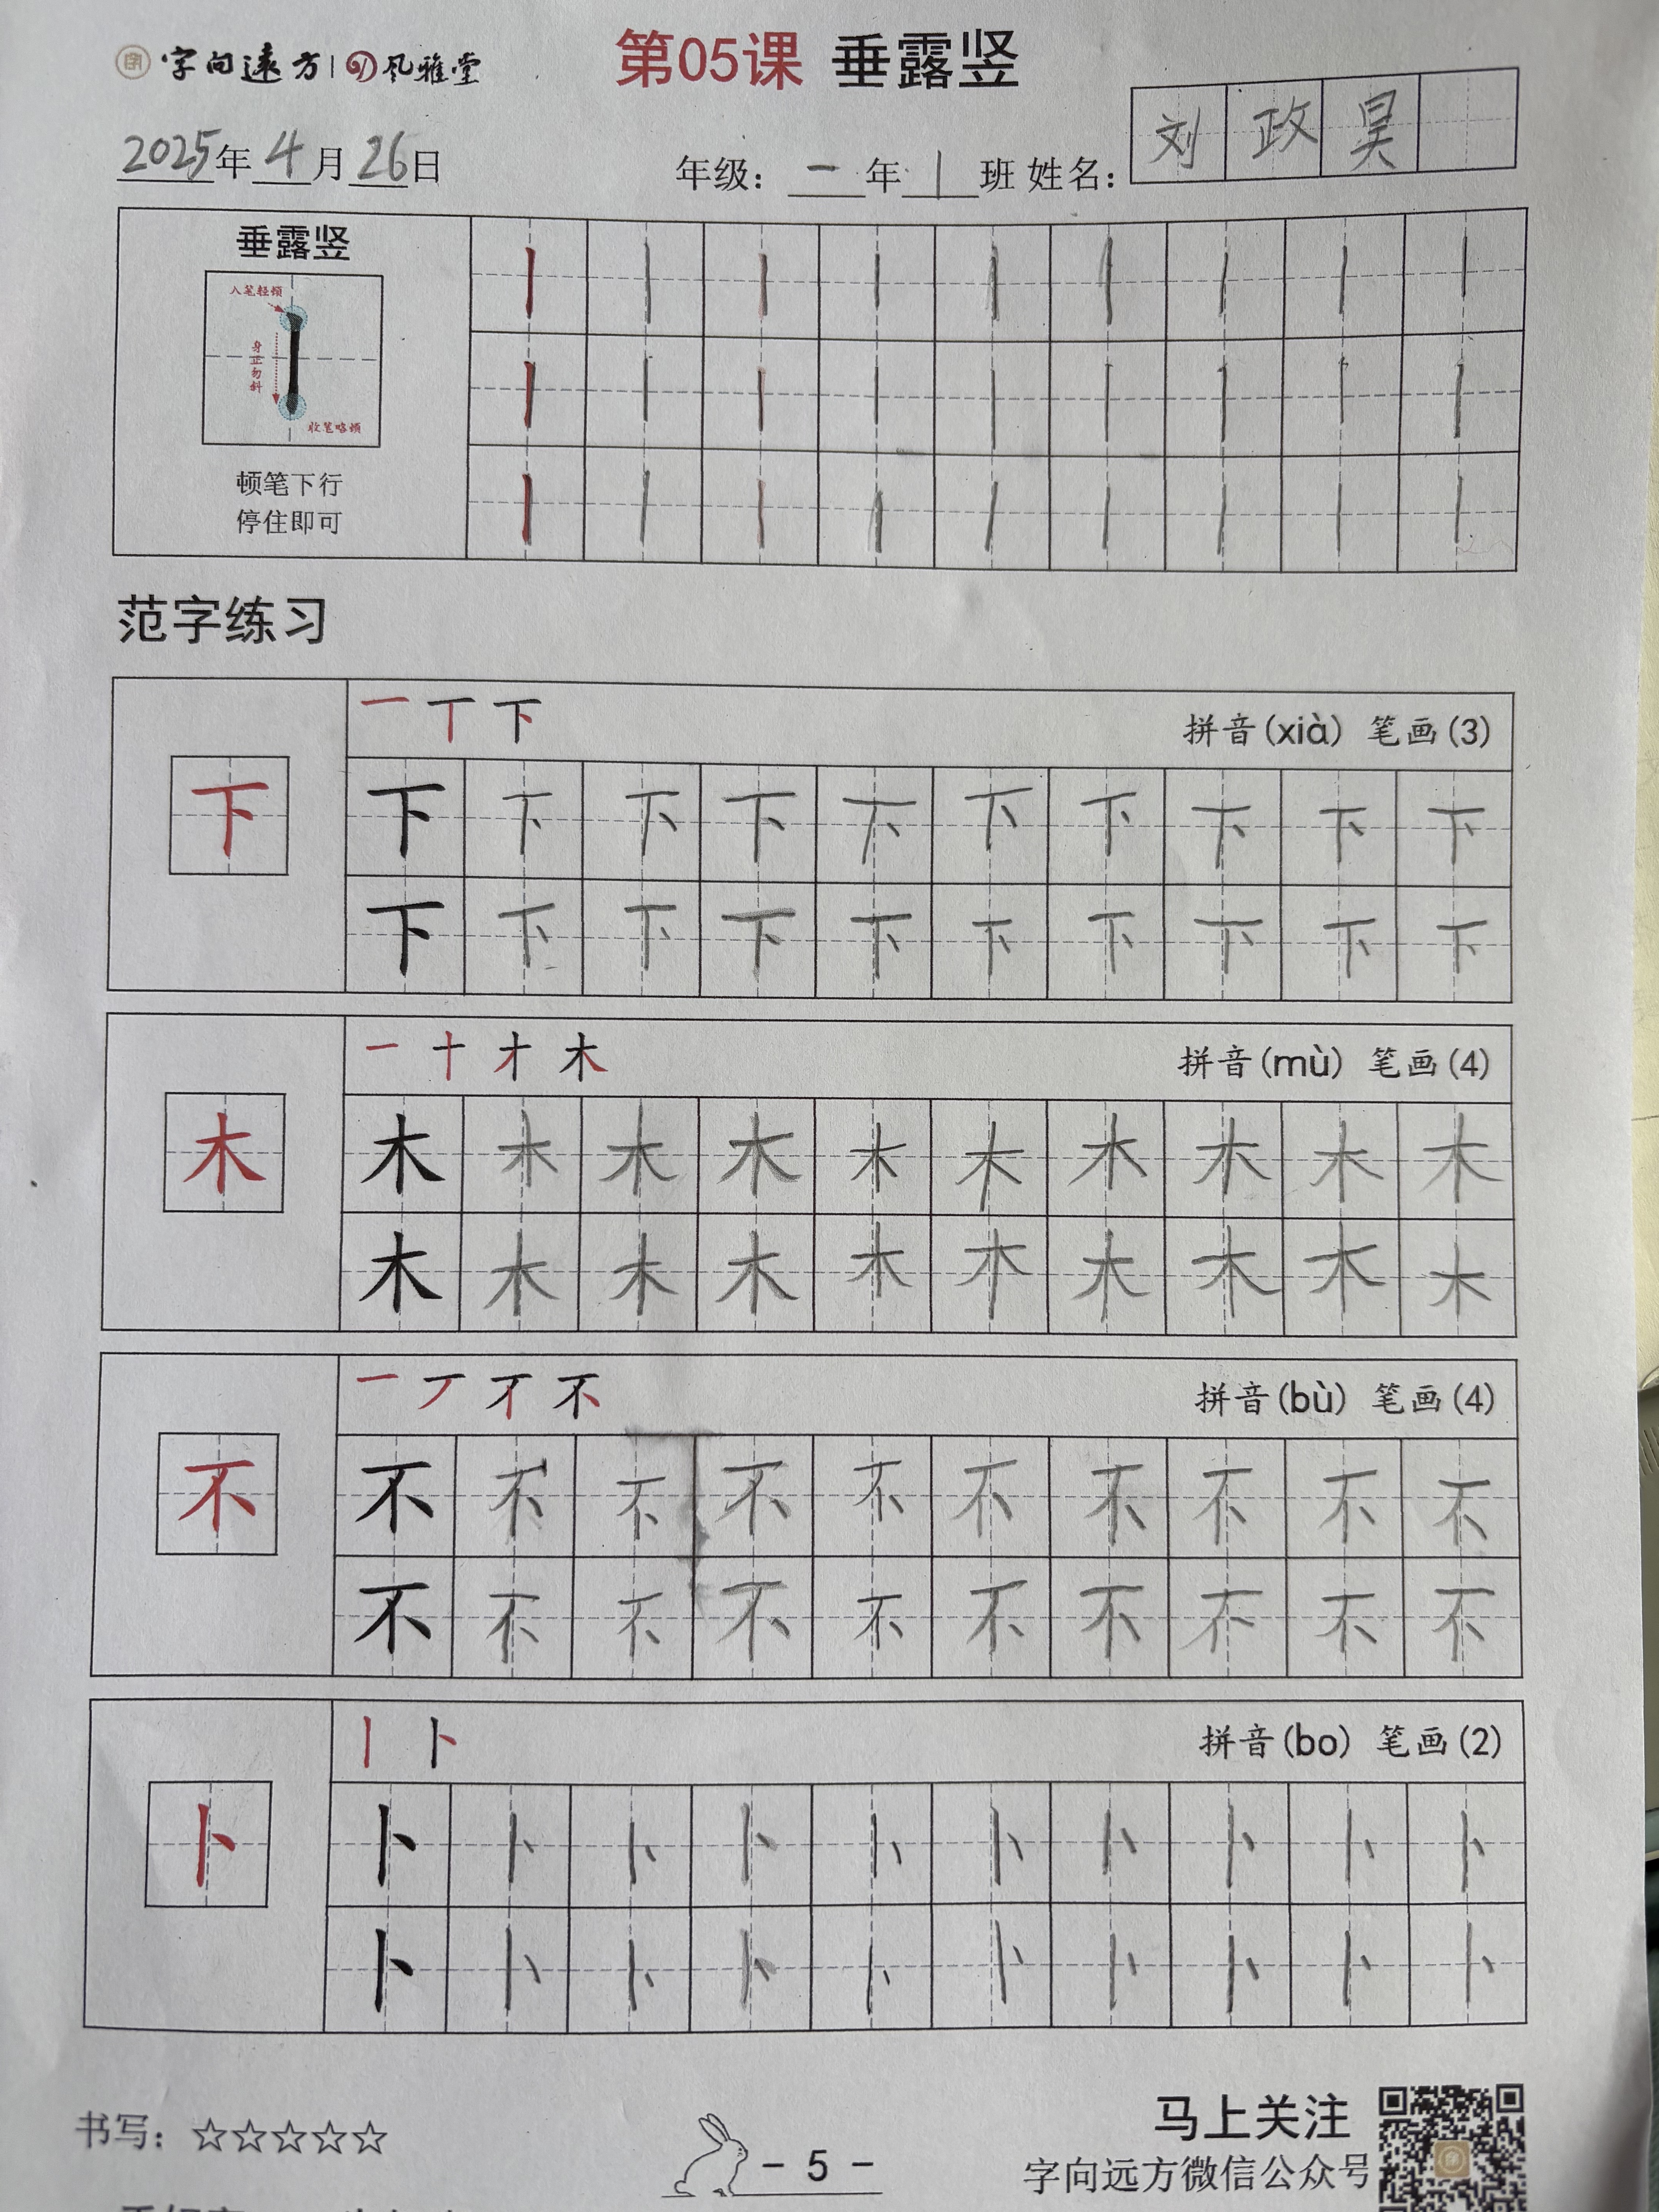 字向远方 | 风雅堂
第05课 垂露竖
2025年4月26日 年级：一年1班 姓名：刘政昊
垂露竖
入笔轻顿
身正勿斜
收笔略顿
顿笔下行
停住即可
范字练习
拼音(xià) 笔画(3)
下 下 下 下 下 下 下 下 下 下 下
下 下 下 下 下 下 下 下 下 下
拼音(mù) 笔画(4)
木 木 木 木 木 木 木 木 木 木 木
木 木 木 木 木 木 木 木 木 木
拼音(bù) 笔画(4)
不 不 不 不 不 不 不 不 不 不 不
不 不 不 不 不 不 不 不 不 不
拼音(bo) 笔画(2)
卜 卜 卜 卜 卜 卜 卜 卜 卜 卜 卜
卜 卜 卜 卜 卜 卜 卜 卜 卜 卜
书写：☆☆☆☆☆
- 5 -
马上关注
字向远方微信公众号